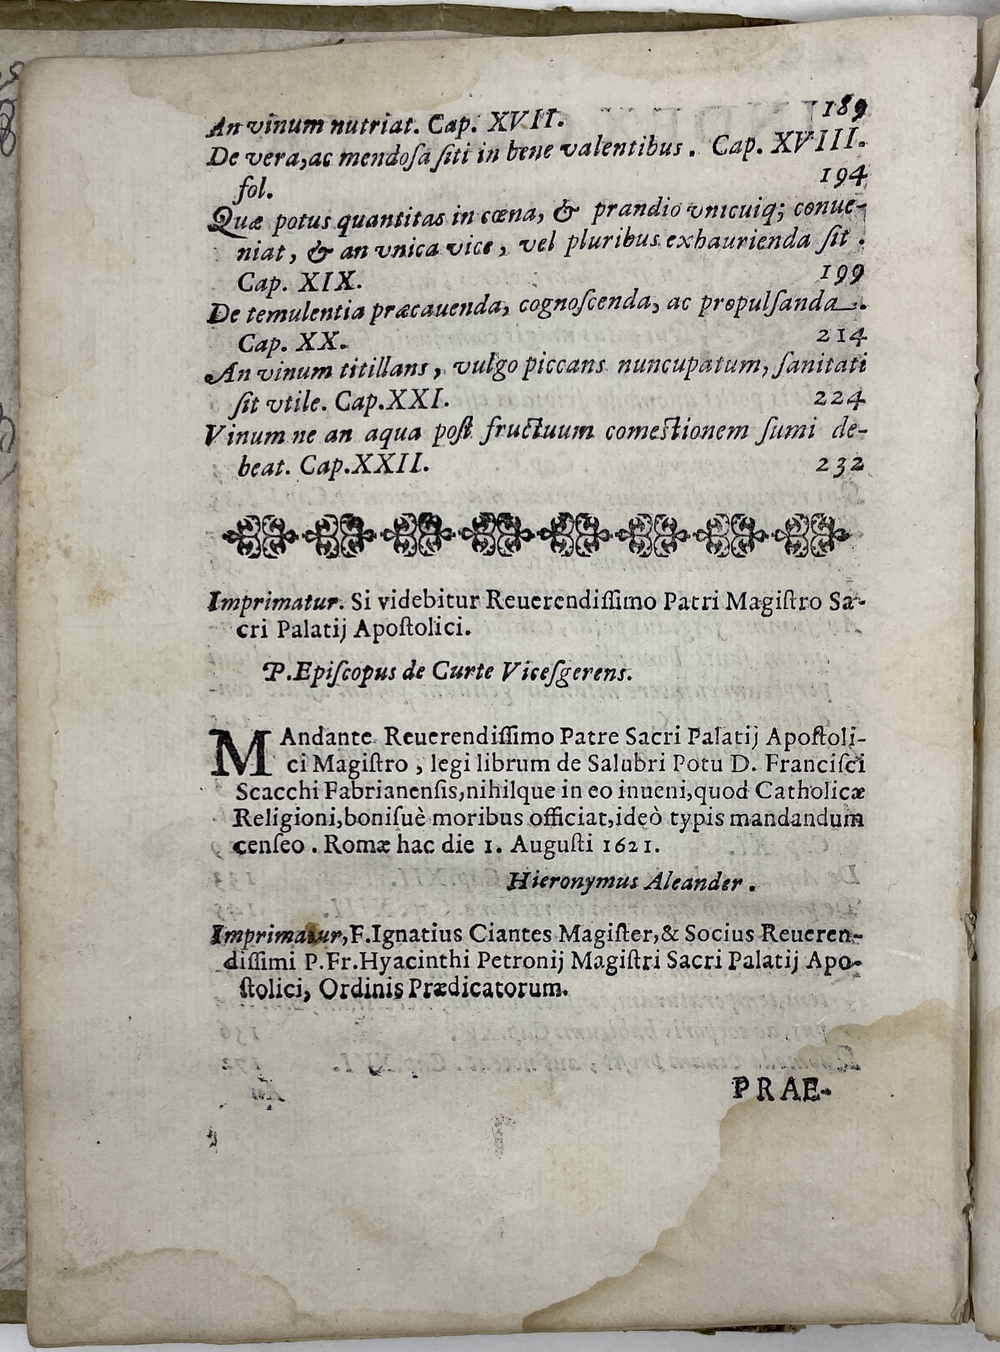 An vinum nutriat. Cap. XVII. 189
De vera, ac mendosa siti in bene valentibus. Cap. XVIII.
fol. 194
Quæ potus quantitas in cœna, & prandio vnicuiq; conue-
niat, & an vnica vice, vel pluribus exhaurienda sit.
Cap. XIX. 199
De temulentia præcauenda, cognoscenda, ac propulsanda.
Cap. XX. 214
An vinum titillans, vulgo piccans nuncupatum, sanitati
sit vtile. Cap. XXI. 224
Vinum ne an aqua post fructuum comestionem sumi de-
beat. Cap. XXII. 232
Imprimatur. Si videbitur Reuerendissimo Patri Magistro Sa-
cri Palatij Apostolici.
P. Episcopus de Curte Vicesgerens.
MAndante Reuerendissimo Patre Sacri Palatij Apostoli-
ci Magistro, legi librum de Salubri Potu D. Francisci
Scacchi Fabrianensis, nihilque in eo inueni, quod Catholicæ
Religioni, bonisuè moribus officiat, ideò typis mandandum
censeo. Romæ hac die 1. Augusti 1621.
Hieronymus Aleander.
Imprimatur, F. Ignatius Ciantes Magister, & Socius Reueren-
dissimi P. Fr. Hyacinthi Petronij Magistri Sacri Palatij Apo-
stolici, Ordinis Prædicatorum.
PRAE-